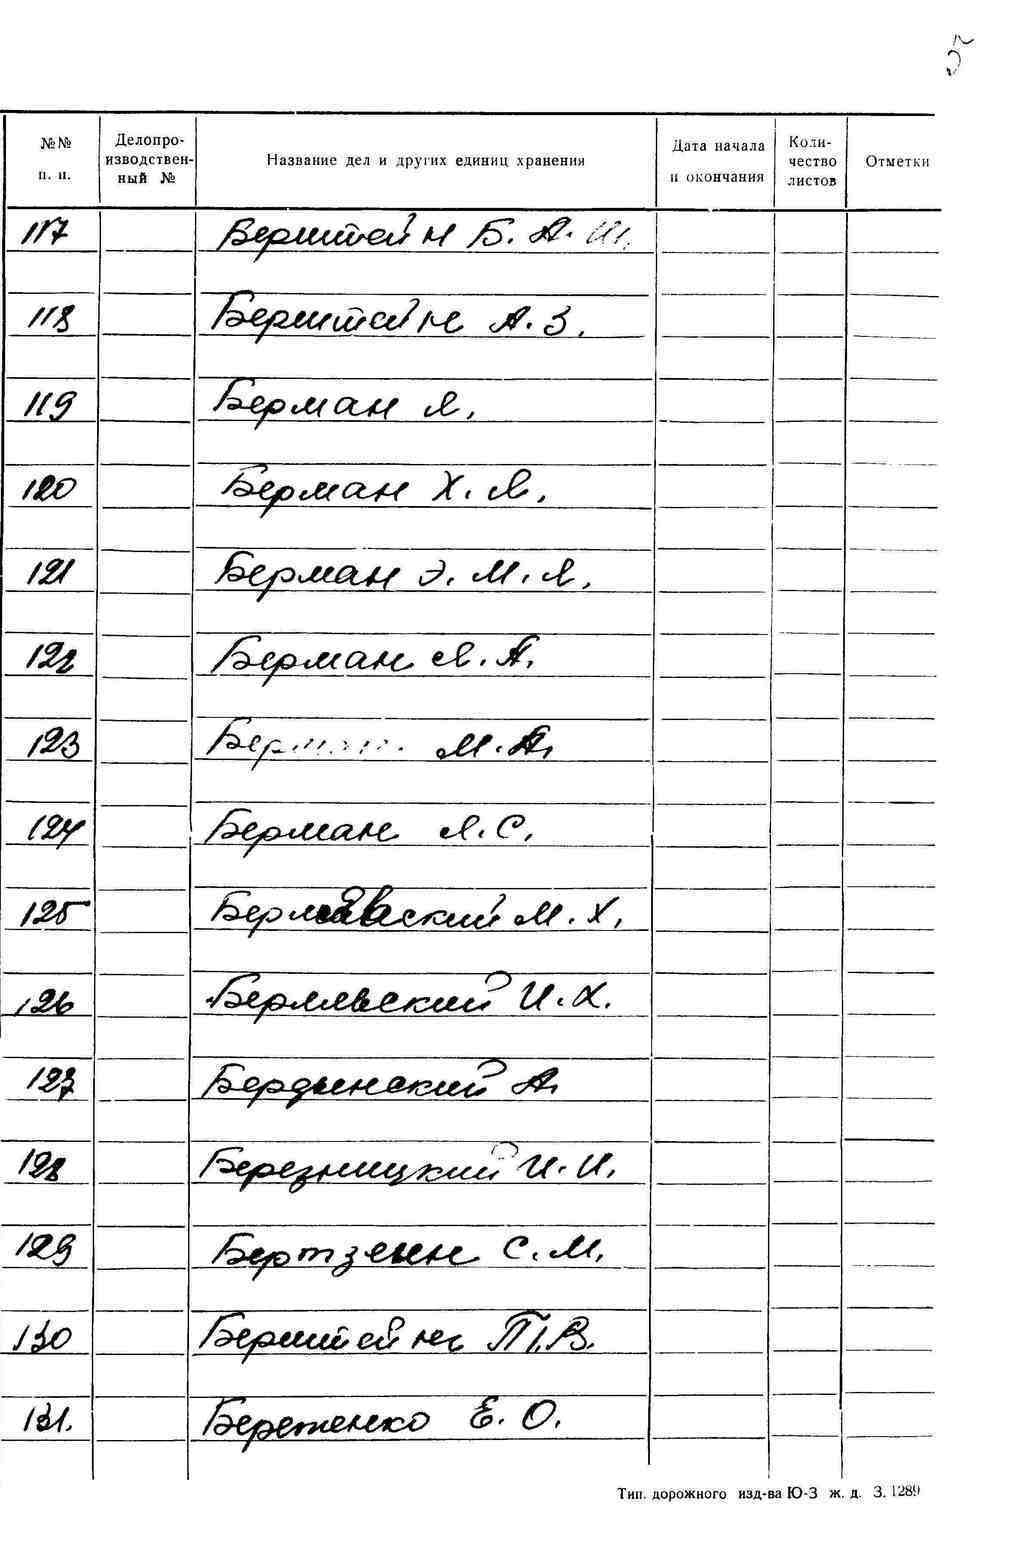 №№ п. п. Делопроизводственный № Название дел и других единиц хранения Дата начала и окончания Количество листов Отметки
117 Берштейн Б. А. Ш.
118 Берштейн А. З.
119 Берман Л.
120 Берман Х. Л.
121 Берман Э. М. Л.
122 Берман Л. А.
123 Берман М. А.
124 Берман Л. С.
125 ский М. Х.
126 Берлявский И. Х.
127 Бердынский А.
128 Березницкий И. И.
129 Бертзейн С. М.
130 Берштейн П. В.
131. Береженко Е. О.
Тип. дорожного изд-ва Ю-З ж. д. З. 1289